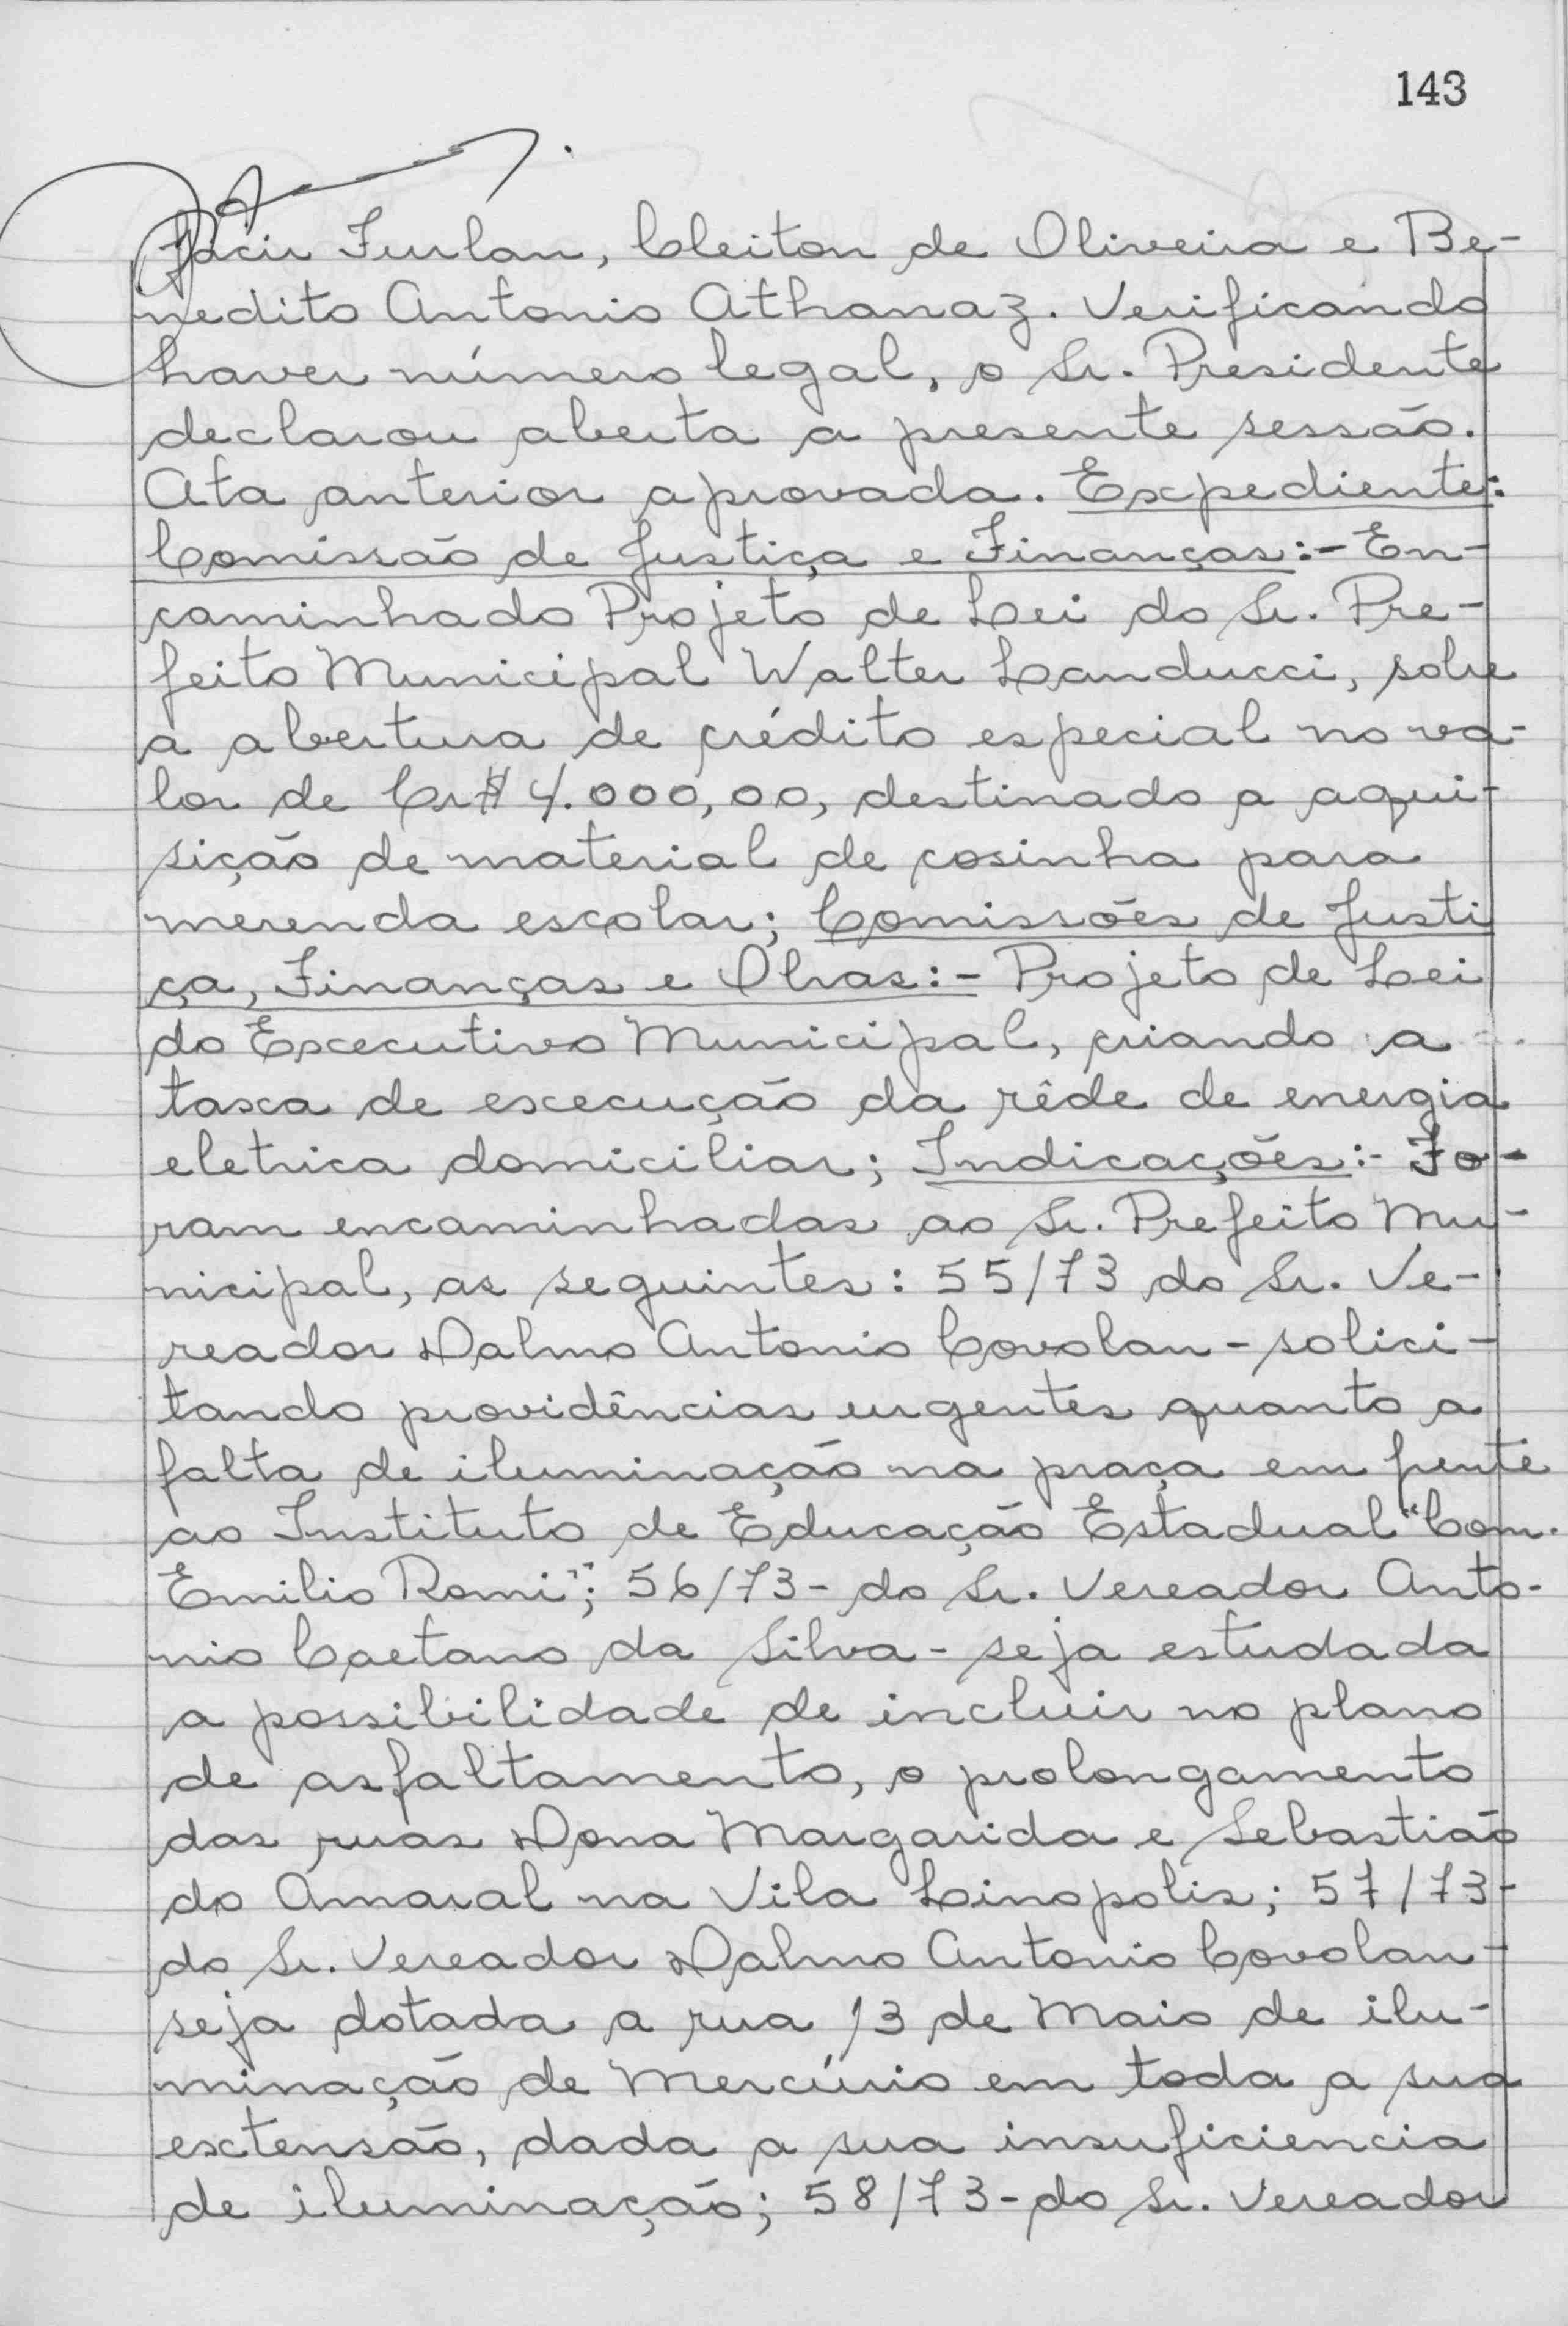 143
Jacir Furlan, Cleiton de Oliveira e Be-
nedito Antonio Athanaz. Verificando
haver número legal, o Sr. Presidente
declarou aberta a presente sessão.
Ata anterior aprovada. Expediente:
Comissão de Justiça e Finanças:- En-
caminhado Projeto de Lei do Sr. Pre-
feito Municipal Walter Landucci, sobre
a abertura de crédito especial no va-
lor de Cr$ 4.000,00, destinado a aqui-
sição de material de cosinha para
merenda escolar; Comissões de Justi
ça, Finanças e Obras:- Projeto de Lei
do Executivo Municipal, criando a
taxa de execução da rêde de energia
eletrica domiciliar; Indicações:- Fo-
ram encaminhadas ao Sr. Prefeito Mu-
nicipal, as seguintes: 55/73 do Sr. Ve-
reador Dalmo Antonio Covolan - solici-
tando providências urgentes quanto a
falta de iluminação na praça em frente
ao Instituto de Educação Estadual "Com.
Emilio Romi"; 56/73 - do Sr. Vereador Anto-
nio Caetano da Silva - seja estudada
a possibilidade de incluir no plano
de asfaltamento, o prolongamento
das ruas Dona Margarida e Sebastião
do Amaral na Vila Linopolis; 57/73 -
do Sr. Vereador Dalmo Antonio Covolan -
seja dotada a rua 13 de Maio de ilu-
minação de Mercúrio em toda a sua
extensão, dada a sua insuficiencia
de iluminação; 58/73 - do Sr. Vereador